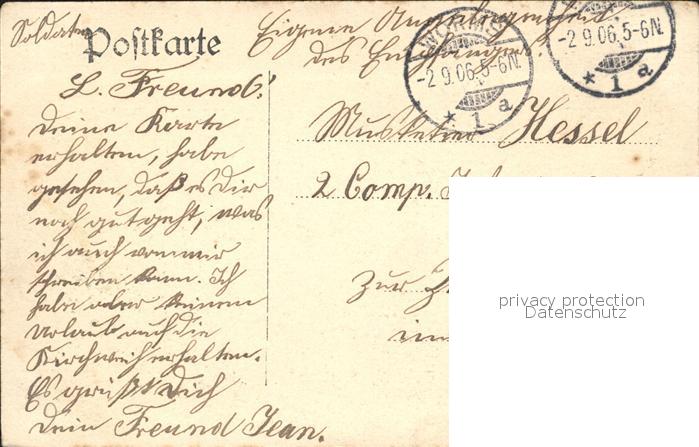 Soldaten
Postkarte
Eigene Angelegenheit
des Empfängers!
WORMS
-2.9.06.5-6N.
* 1 a
-2.9.06.5-6N.
* 1 a
L. Freund!
Deine Karte
erhalten, habe
gesehen, daß es Dir
noch gut geht, was
ich auch von mir
schreiben kann. Ich
habe aber keinen
Urlaub auf die
Kirchweih erhalten.
Es grüßt Dich
Dein Freund Jean.
Musketier Hessel
2 Comp.
Zur
im
privacy protection
Datenschutz